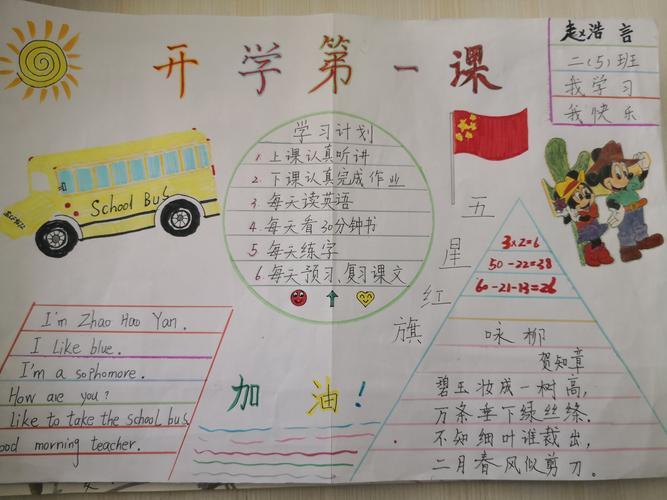 开学第一课
赵浩言
二(5)班
我学习
我快乐
School Bus
学习计划
1.上课认真听讲
2.下课认真完成作业
3.每天读英语
4.每天看30分钟书
5.每天练字
6.每天预习、复习课文
五星红旗
3×2=6
50-22=38
60-21-13=26
咏柳
贺知章
碧玉妆成一树高,
万条垂下绿丝绦.
不知细叶谁裁出,
二月春风似剪刀.
I'm Zhao Hao Yan.
I like blue.
I'm a sophomore.
How are you?
like to take the school bus
ood morning teacher.
加油!